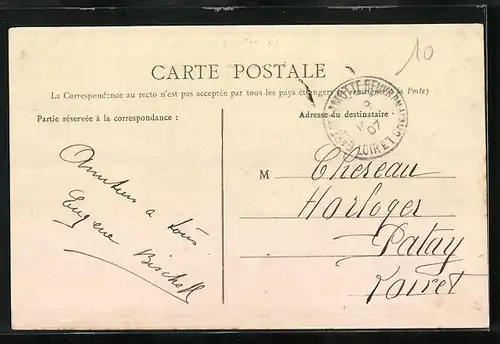 10
CARTE POSTALE
La Correspondance au recto n'est pas acceptée par tous les pays étrangers (Se renseigner à la Poste)
Partie réservée à la correspondance :
Adresse du destinataire :
LAMOTTE BEUVRON
LOIR ET CHER
07
Amitiés à tous
Eugène Bischoff
M Chereau
Horloger
Patay
Loiret